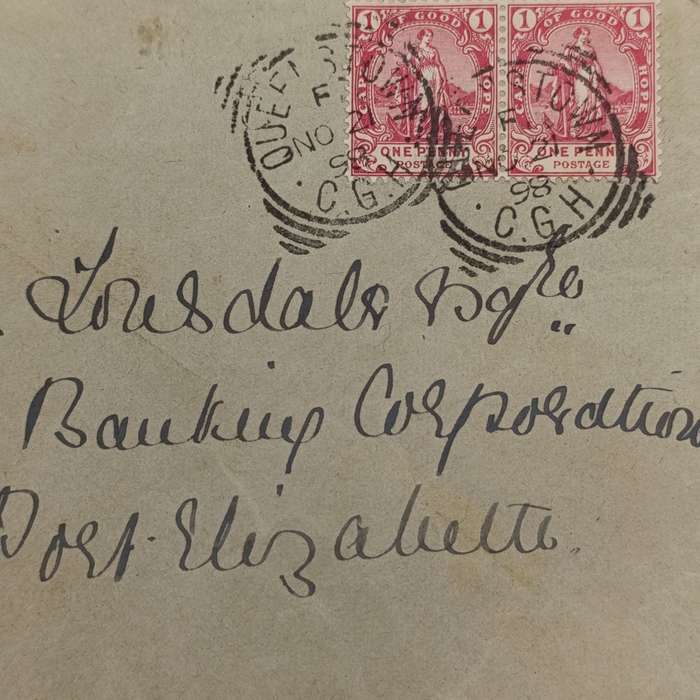 1 OF GOOD 1 1 OF GOOD 1
CAPE HOPE HOPE
ONE PENNY ONE PENNY
POSTAGE POSTAGE
QUEENSTOWN
F
NO 21
98
C.G.H.
F
NO 21
98
C.G.H.
Lonsdale Esqre
Banking Corporation
Port Elizabeth